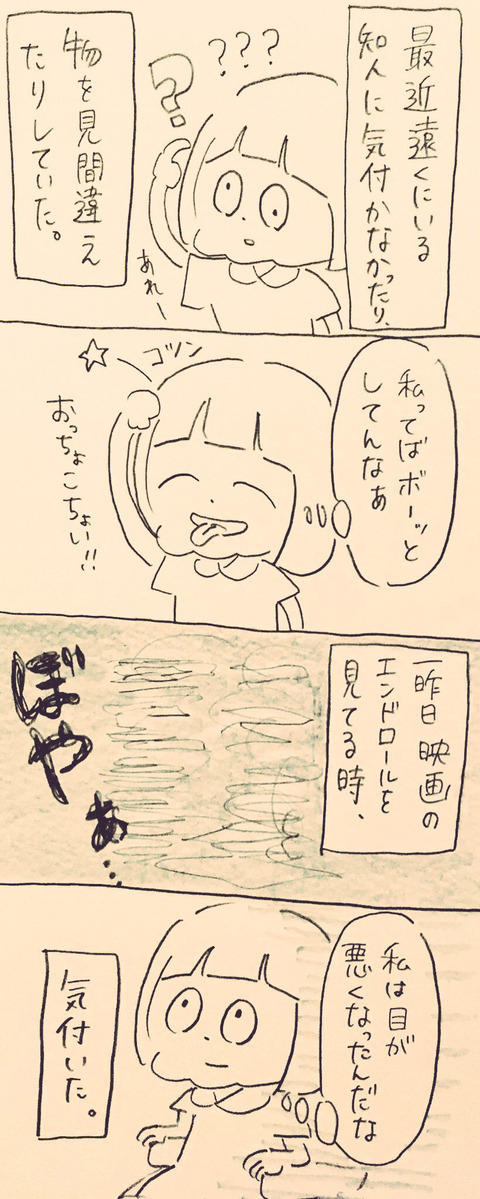 最近遠くにいる
知人に気付かなかったり、
???
?
あれー
物を見間違え
たりしていた。
私ってばボーッと
してんなぁ
コツン
おっちょこちょい!!
一昨日映画の
エンドロールを
見てる時、
ぼやぁ…
私は目が
悪くなったんだな
気付いた。